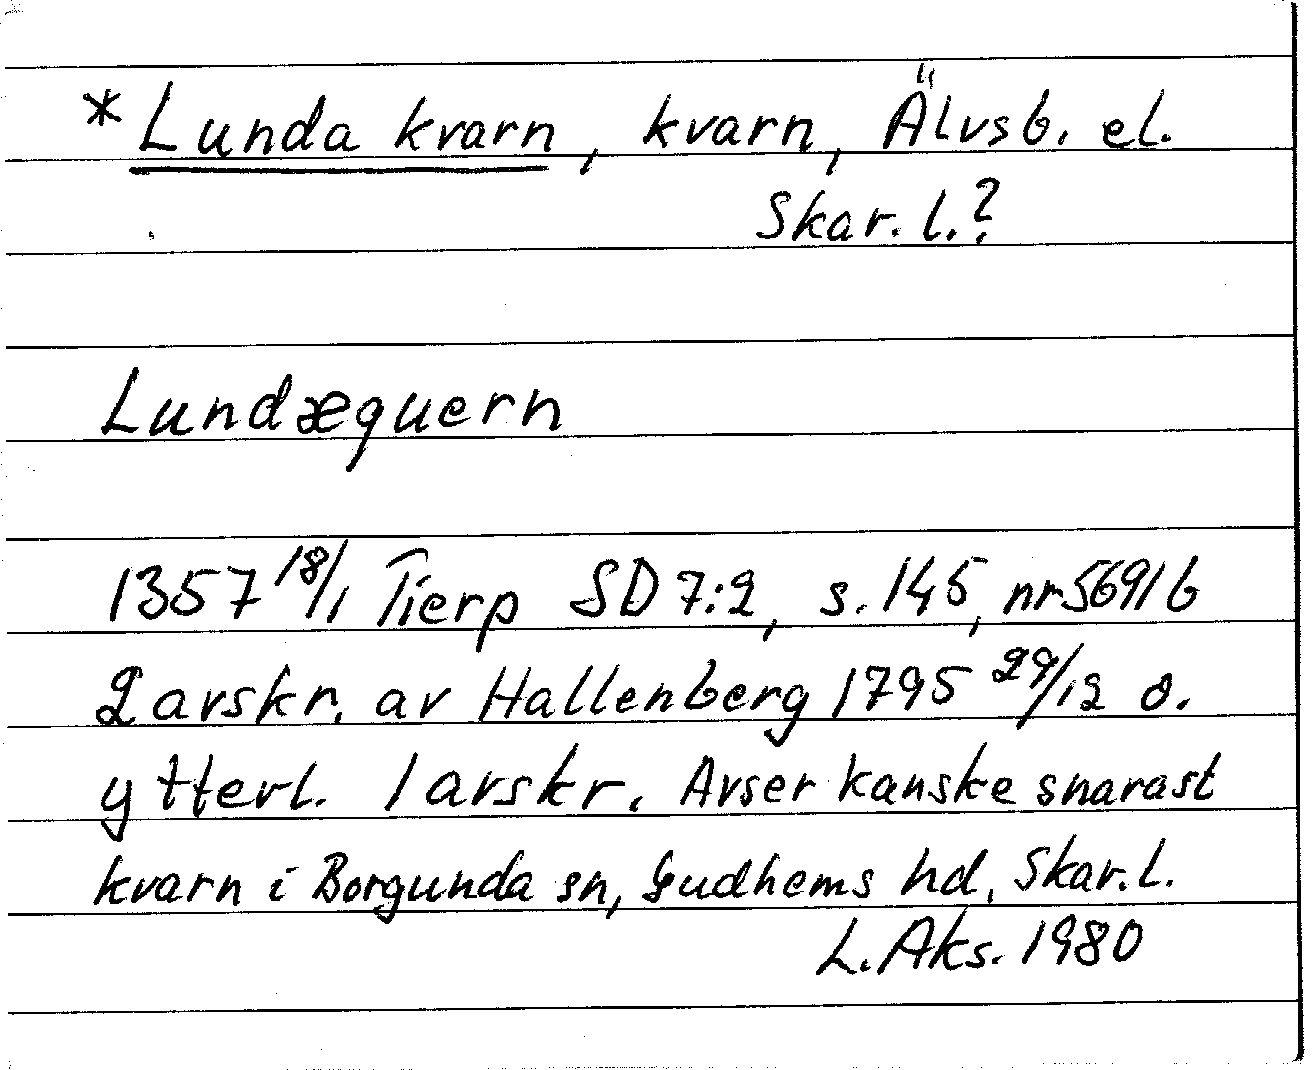 *Lunda kvarn, kvarn, Älvsb. el.
Skar. l.?
Lundæquern
1357 18/1 Tierp SD 7:2, s. 145, nr 5691 b
2 avskr. av Hallenberg 1795 29/12 o.
ytterl. 1 avskr. Avser kanske snarast
kvarn i Borgunda sn, Gudhems hd, Skar. l.
L. Aks. 1980